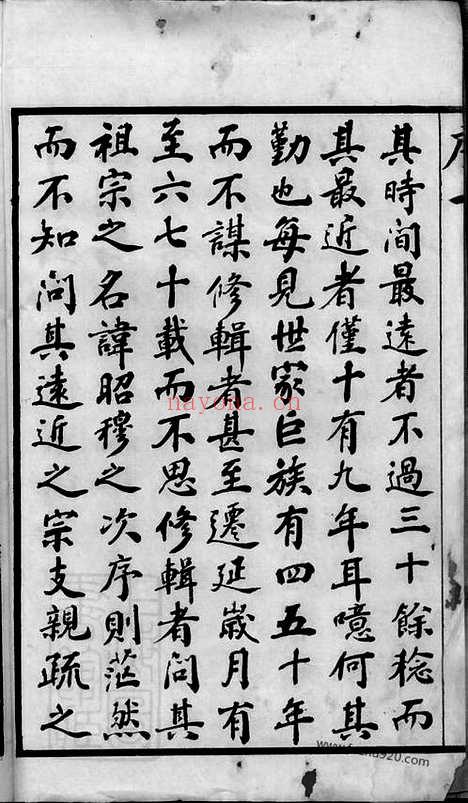 其時間最遠者不過三十餘稔而
其最近者僅十有九年耳噫何其
勤也每見世家巨族有四五十年
而不謀修輯者甚至遷延歲月有
至六七十載而不思修輯者問其
祖宗之名諱昭穆之次序則茫然
而不知問其遠近之宗支親疏之
nayona.cn